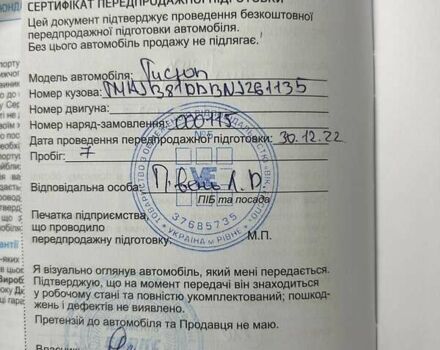 СЕРТИФІКАТ ПЕРЕДПРОДАЖНОЇ ПІДГОТОВКИ
Цей документ підтверджує проведення безкоштовної
передпродажної підготовки автомобіля.
Без цього автомобіль продажу не підлягає.
Модель автомобіля: Тисуоп
Номер кузова: TMAJ381DDBNJ261135
Номер двигуна:
Номер наряд-замовлення: 000115
Дата проведення передпродажної підготовки: 30.12.22
Пробіг: 7
Відповідальна особа: Півень Л.В
ПІБ та посада
Печатка підприємства,
що проводило
передпродажну підготовку: М.П.
37685735
УКРАЇНА м РІВНЕ
Я візуально оглянув автомобіль, який мені передається.
Підтверджую, що на момент передачі він знаходиться
у робочому стані та повністю укомплектований; пошкод-
жень і дефектів не виявлено.
Претензій до автомобіля та Продавця не маю.